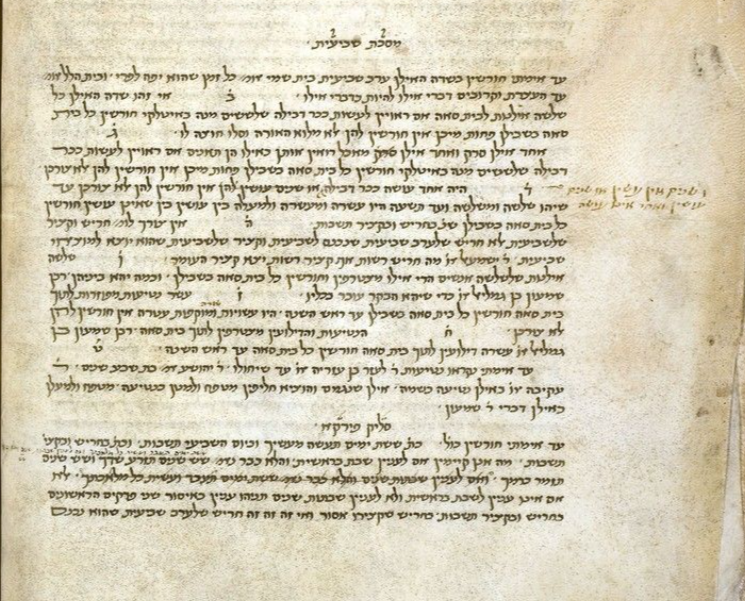 מסכת שביעית
עד אימתי חורשין בשדה האילן ערב שביעית בית שמי אומ׳ כל זמן שהוא יפה לפרי ובית הלל אומ׳
עד העצרת וקרובים דברי אילו להיות כדברי אילו ב אי זהו שדה האילן כל
שלשה אילנות לבית סאה אם ראויין לעשות ככר דבילה שלשים מנה באיטלקי חורשין כל בית
סאה בשבילן פחות מיכן אין חורשין להן לא מלוא האורה וסלו חוצה לו ג
אחד אילן סרק ואחד אילן מאכל רואין אותן כאילו הן תאנים אם ראויין לעשות ככר
דבילה שלשים מנה באיטלקי חורשין כל בית סאה בשבילן פחות מיכן אין חורשין להן אלא לצרכן
ד היה אחד עושה ככר דבילה או שנים עושין להן אין חורשין להן לא צורכן עד
שיהו שלשה ומשלשה ועד תשעה היו עשרה ומעשרה ולמעלה בין עושין בין שאינן עושין חורשין
כל בית סאה בשבילן שנ׳ בחריש ובקציר תשבות ה אין צורך לומ׳ חריש וקציר
שלשביעית לא חריש שלערב שביעית שנכנס לשביעית וקציר שלשביעית שהוא יוצא למוצאי
שביעית ר׳ ישמעאל או׳ מה חריש רשות אף קציר רשות יצא קציר העומר ו שלשה
אילנות שלשלשה אנשים הרי אילו מצטרפין וחורשין כל בית סאה בשבילן וכמה יהא ביניהן רבן
שמעון בן גמליאל או׳ כדי שיהא הבקר עובר בכליו ז עשר נטיעות מפוזרות לתוך
בית סאה חורשין כל בית סאה בשבילן עד ראש השנה היו עשויות ומוקפות עטרה אין חורשין להן
לא צורכן ח הנטיעות והדילועין מצטרפין לתוך בית סאה רבן שמעון בן
גמליאל או׳ עשרה דילועין לתוך בית סאה חורשין כל בית סאה עד ראש השנה ט
עד אימתי נקראו נטיעות ר׳ לעזר בן עזריה או׳ עד שיחולו ר׳ יהושע או׳ בת שבע שנים ר׳
עקיבה או׳ באילן נטיעה כשמה אילן שנגמם והוציא חליפין מטפח ולמטן כנטיעה מטפח ולמעלן
כאילן דברי ר׳ שמעון
סליק פירקא
עד אימתי חורשין כול׳ כת׳ ששת ימים תעשה מעשיך וביום השביעי תשבות וכת׳ בחריש ובקציר
תשבות מה אנן קיימין אם לעניין שבת בראשית והלא כבר נאמ׳ שש שנים תזרע שדך ושש שנים
תזמר כרמך ואם לעניין שבתות שנים והלא כבר נאמ׳ ששת ימים תעבד ועשית כל מלאכתך לא
אם אינו עניין לשבת בראשית ולא לעניין שבתות שנים תניהו עניין באיסור שני פרקים הראשונים
בחריש ובקציר תשבות בחריש שקצירו אסור ואי זה זה זה חריש שלערב שביעית שהוא נכנס